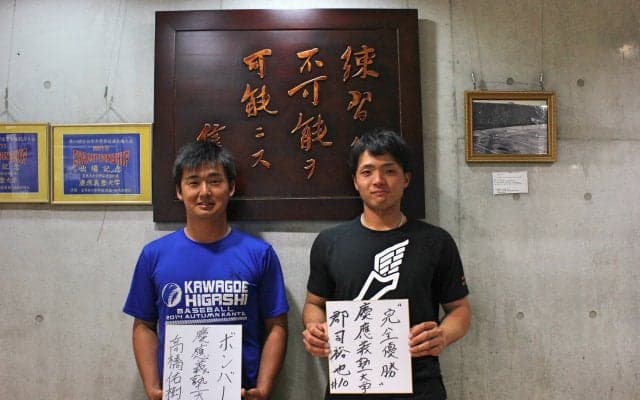 練習
不可能ヲ
可能ニス
信
CHAMPIONSHIP
出場記念
慶應義塾大学
KAWAGOE
HIGASHI
BASEBALL
2014 AUTUMN
ボンバー
慶應義塾大
髙橋佑樹
"完全優勝"
慶應義塾大学
郡司裕也 #10